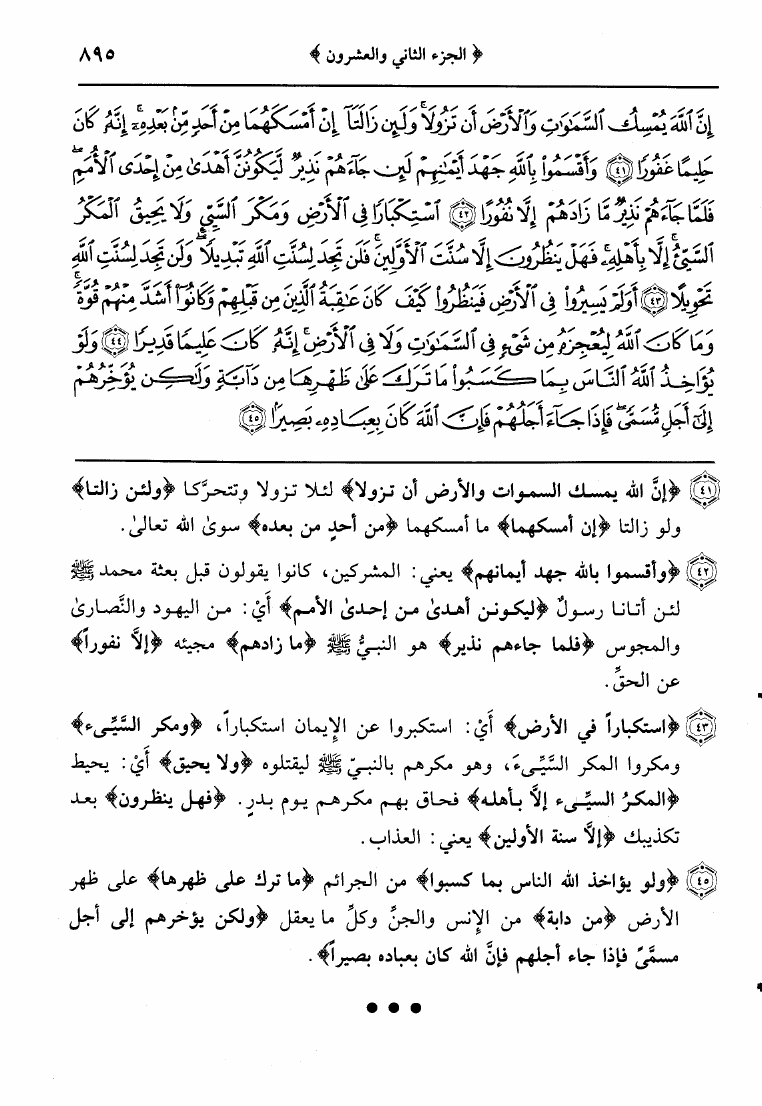 ﴿ الجزء الثاني والعشرون ﴾ ٨٩٥
إِنَّ ٱللَّهَ يُمْسِكُ ٱلسَّمَٰوَٰتِ وَٱلْأَرْضَ أَن تَزُولَا ۚ وَلَئِن زَالَتَآ إِنْ أَمْسَكَهُمَا مِنْ أَحَدٍ مِّنۢ بَعْدِهِۦٓ ۚ إِنَّهُۥ كَانَ
حَلِيمًا غَفُورًا ﴿٤١﴾ وَأَقْسَمُوا۟ بِٱللَّهِ جَهْدَ أَيْمَٰنِهِمْ لَئِن جَآءَهُمْ نَذِيرٌ لَّيَكُونُنَّ أَهْدَىٰ مِنْ إِحْدَى ٱلْأُمَمِ ۖ
فَلَمَّا جَآءَهُمْ نَذِيرٌ مَّا زَادَهُمْ إِلَّا نُفُورًا ﴿٤٢﴾ ٱسْتِكْبَارًا فِى ٱلْأَرْضِ وَمَكْرَ ٱلسَّيِّئِ ۚ وَلَا يَحِيقُ ٱلْمَكْرُ
ٱلسَّيِّئُ إِلَّا بِأَهْلِهِۦ ۚ فَهَلْ يَنظُرُونَ إِلَّا سُنَّتَ ٱلْأَوَّلِينَ ۚ فَلَن تَجِدَ لِسُنَّتِ ٱللَّهِ تَبْدِيلًا ۖ وَلَن تَجِدَ لِسُنَّتِ ٱللَّهِ
تَحْوِيلًا ﴿٤٣﴾ أَوَلَمْ يَسِيرُوا۟ فِى ٱلْأَرْضِ فَيَنظُرُوا۟ كَيْفَ كَانَ عَٰقِبَةُ ٱلَّذِينَ مِن قَبْلِهِمْ وَكَانُوٓا۟ أَشَدَّ مِنْهُمْ قُوَّةً ۚ
وَمَا كَانَ ٱللَّهُ لِيُعْجِزَهُۥ مِن شَىْءٍ فِى ٱلسَّمَٰوَٰتِ وَلَا فِى ٱلْأَرْضِ ۚ إِنَّهُۥ كَانَ عَلِيمًا قَدِيرًا ﴿٤٤﴾ وَلَوْ
يُؤَاخِذُ ٱللَّهُ ٱلنَّاسَ بِمَا كَسَبُوا۟ مَا تَرَكَ عَلَىٰ ظَهْرِهَا مِن دَآبَّةٍ وَلَٰكِن يُؤَخِّرُهُمْ
إِلَىٰٓ أَجَلٍ مُّسَمًّى ۖ فَإِذَا جَآءَ أَجَلُهُمْ فَإِنَّ ٱللَّهَ كَانَ بِعِبَادِهِۦ بَصِيرًۢا ﴿٤٥﴾
﴿٤١﴾ ﴿إنَّ الله يمسك السموات والأرض أن تزولا﴾ لئلا تزولا وتتحرَّكا ﴿ولئن زالتا﴾
ولو زالتا ﴿إن أمسكهما﴾ ما أمسكهما ﴿من أحدٍ من بعده﴾ سوىٰ الله تعالىٰ.
﴿٤٢﴾ ﴿وأقسموا بالله جهد أيمانهم﴾ يعني: المشركين، كانوا يقولون قبل بعثة محمد ﷺ
لئن أتانا رسولٌ ﴿ليكونن أهدىٰ من إحدىٰ الأمم﴾ أيْ: من اليهود والنَّصارىٰ
والمجوس ﴿فلما جاءهم نذير﴾ هو النبيُّ ﷺ ﴿ما زادهم﴾ مجيئه ﴿إلاَّ نفوراً﴾
عن الحقِّ.
﴿٤٣﴾ ﴿استكباراً في الأرض﴾ أيْ: استكبروا عن الإيمان استكباراً، ﴿ومكر السَّيِّىء﴾
ومكروا المكر السَّيِّىءَ، وهو مكرهم بالنبيّ ﷺ ليقتلوه ﴿ولا يحيق﴾ أيْ: يحيط
﴿المكرُ السيِّىء إلاَّ بأهله﴾ فحاق بهم مكرهم يوم بدرٍ. ﴿فهل ينظرون﴾ بعد
تكذيبك ﴿إلاَّ سنة الأولين﴾ يعني: العذاب.
﴿٤٥﴾ ﴿ولو يؤاخذ الله الناس بما كسبوا﴾ من الجرائم ﴿ما ترك على ظهرها﴾ على ظهر
الأرض ﴿من دابة﴾ من الإنس والجنِّ وكلِّ ما يعقل ﴿ولكن يؤخرهم إلى أجل
مسمَّىً فإذا جاء أجلهم فإنَّ الله كان بعباده بصيراً﴾.